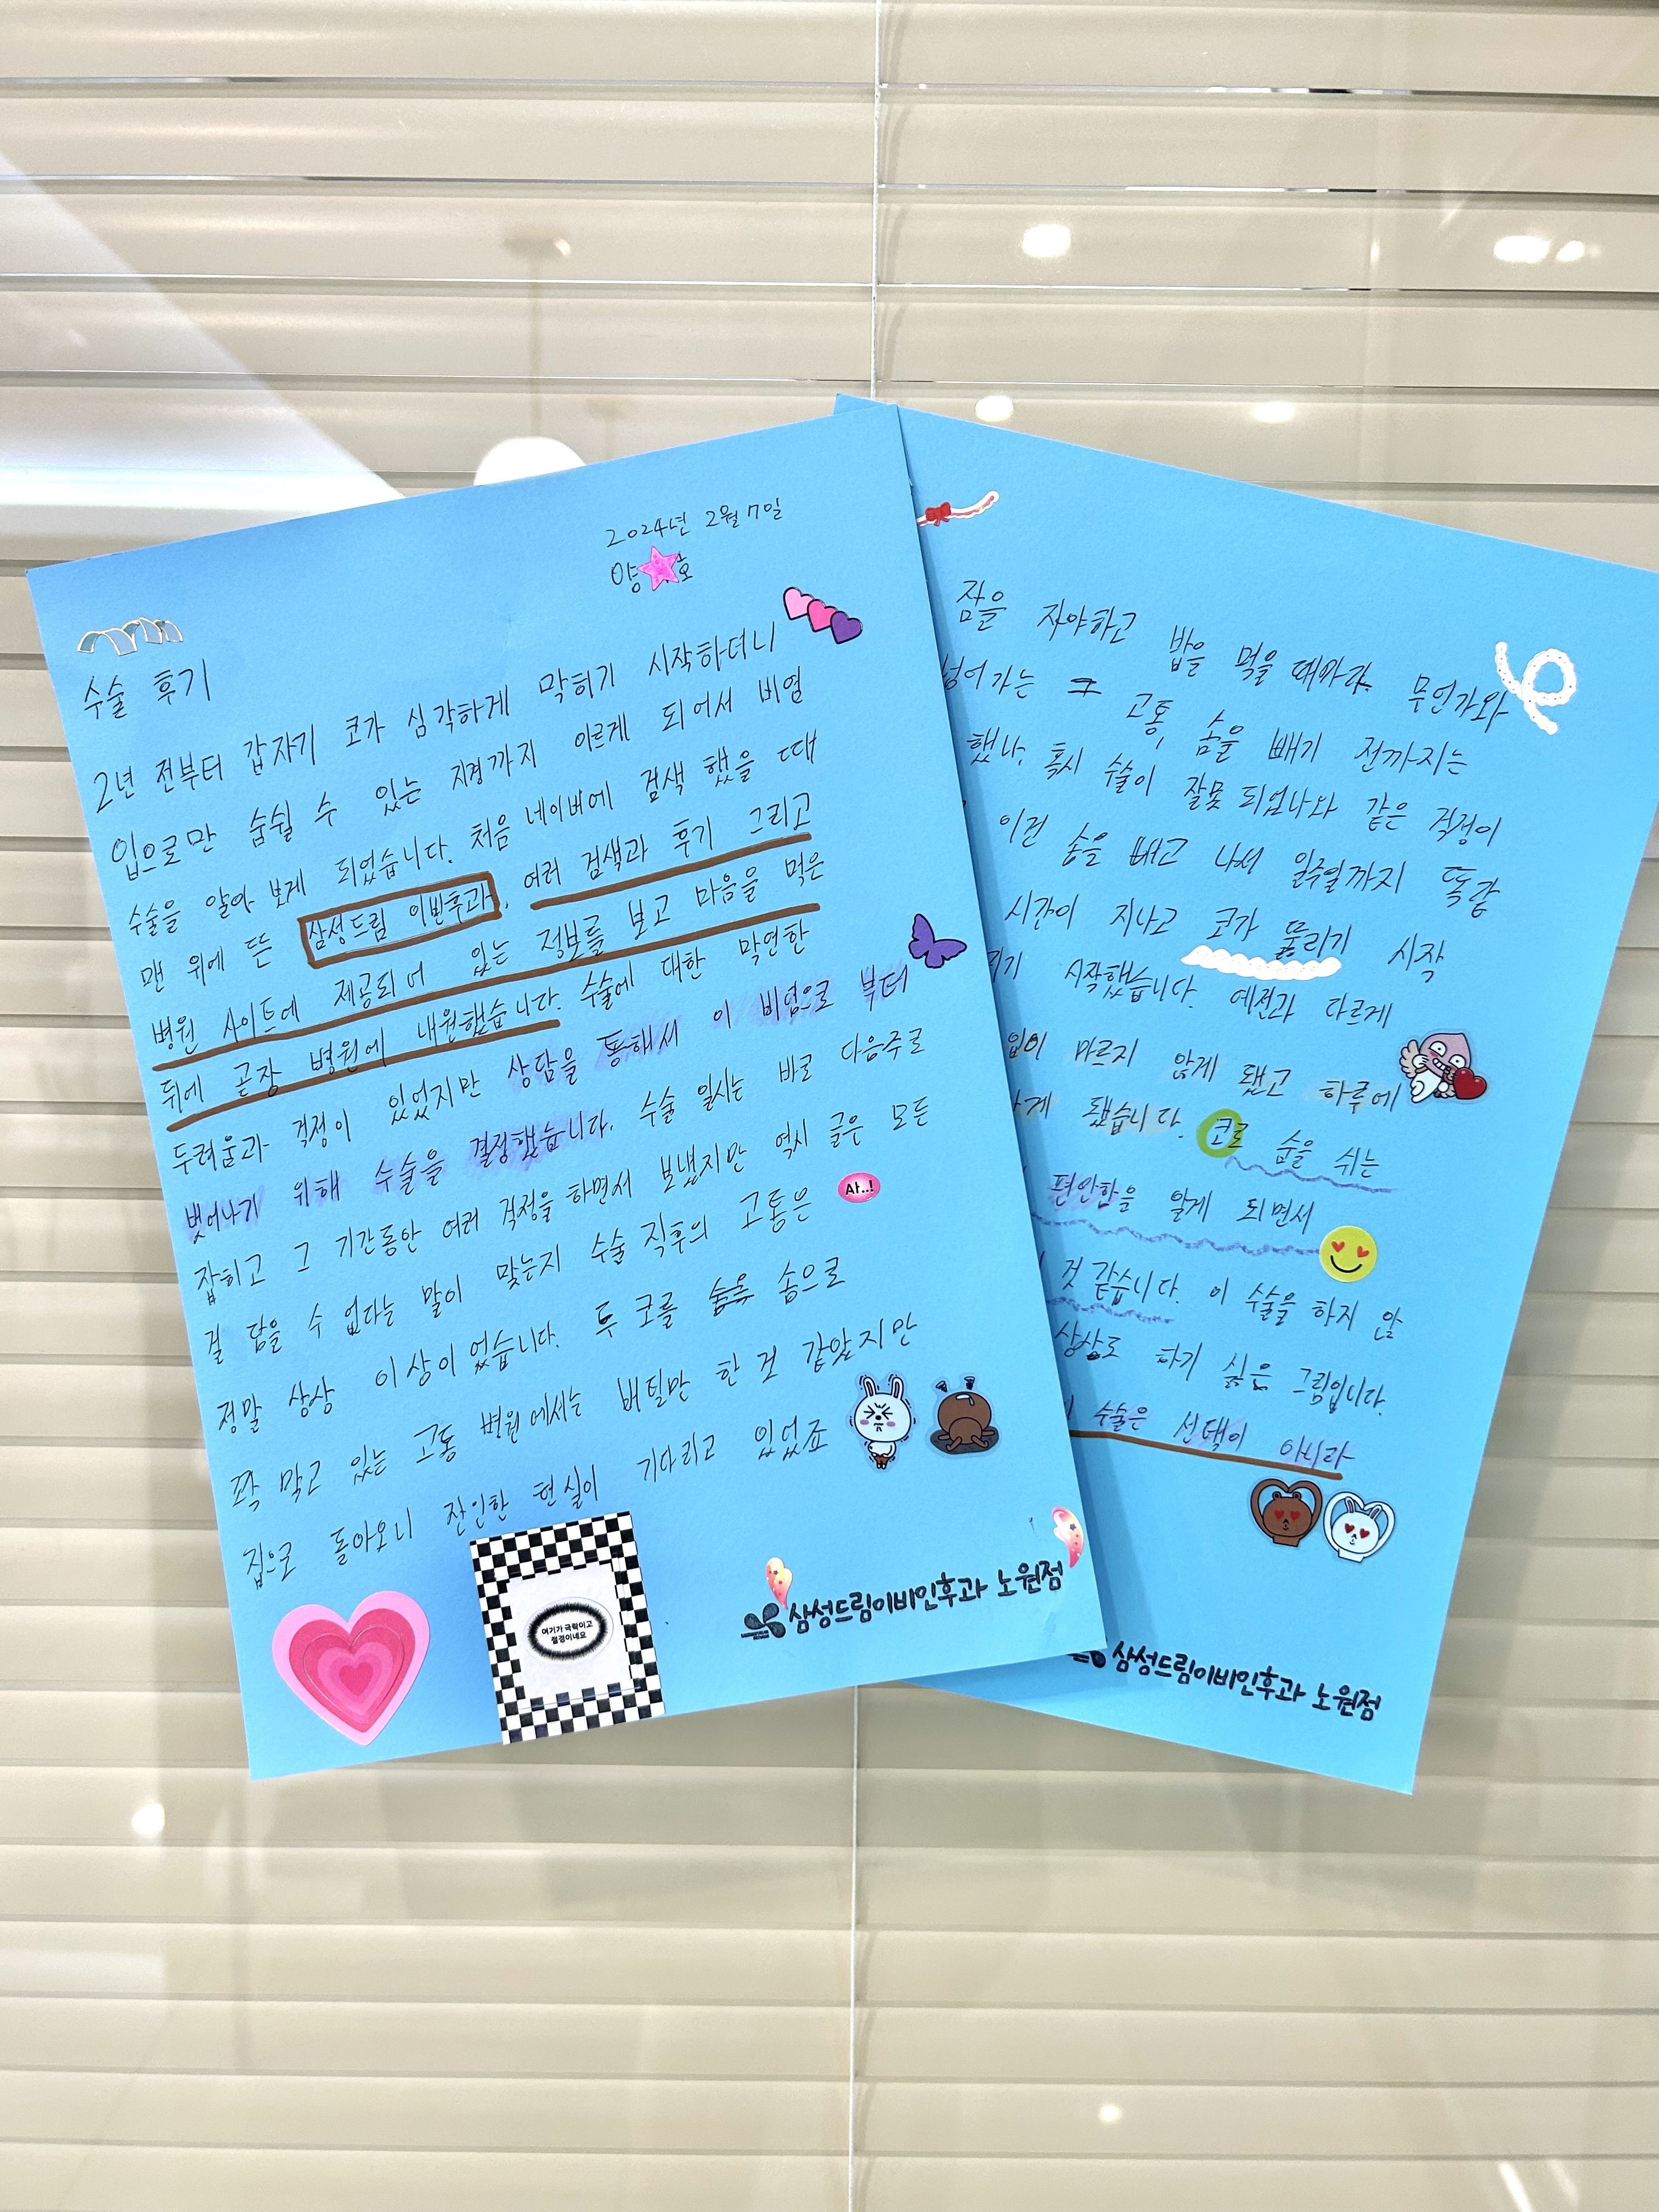 2024년 2월 7일
양 호
수술 후기
2년 전부터 갑자기 코가 심각하게 막히기 시작하더니
입으로만 숨쉴 수 있는 지경까지 이르게 되어서 비염
수술을 알아 보게 되었습니다. 처음 네이버에 검색 했을 때
맨 위에 뜬 삼성드림 이빈후과. 여러 검색과 후기 그리고
병원 사이트에 제공되어 있는 정보를 보고 마음을 먹은
뒤에 곧장 병원에 내원했습니다. 수술에 대한 막연한
두려움과 걱정이 있었지만 상담을 통해서 이 비염으로 부터
벗어나기 위해 수술을 결정했습니다. 수술 일시는 바로 다음주로
잡히고 그 기간동안 여러 걱정을 하면서 보냈지만 역시 글은 모든
걸 담을 수 없다는 말이 맞는지 수술 직후의 고통은
정말 상상 이상이었습니다. 두 코를 솜으로
꽉 막고 있는 고통 병원에서는 버틸만 한 것 같았지만
집으로 돌아오니 잔인한 현실이 기다리고 있었죠
아..!
여기가 극락이고
절경이네요
삼성드림이비인후과 노원점
잠을 자야하고 밥을 먹을 때마다 무언가와
넘어가는 고통, 솜을 빼기 전까지는
했나, 혹시 수술이 잘못 되었나와 같은 걱정이
이런 솜을 빼고 나서 일주일까지 똑같
시간이 지나고 코가 뚫리기 시작
시작했습니다. 예전과 다르게
입이 마르지 않게 됐고 하루에
됐습니다. 코로 숨을 쉬는
편안함을 알게 되면서
것 같습니다. 이 수술을 하지 않
상상도 하기 싫은 그림입니다.
수술은 선택이 아니라
삼성드림이비인후과 노원점